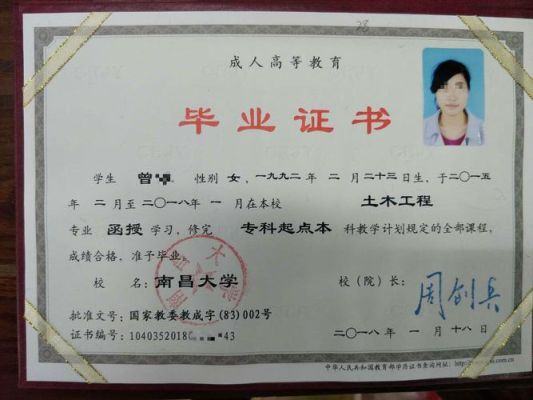 28
成人高等教育
毕业证书
学生 曾 性别 女，一九九二年 二 月二十三日生，于二〇一五
年 二 月至二〇一八年 一 月在本校 土木工程
专业 函授 学习，修完 专科起点本 科教学计划规定的全部课程，
成绩合格，准予毕业。
校 名： 南昌大学 校（院）长： 周创兵
批准文号：国家教委教成字(83)002号
证书编号：1040352018 43 二〇一八年 一 月十八日
中华人民共和国教育部学历证书查询网址：http://